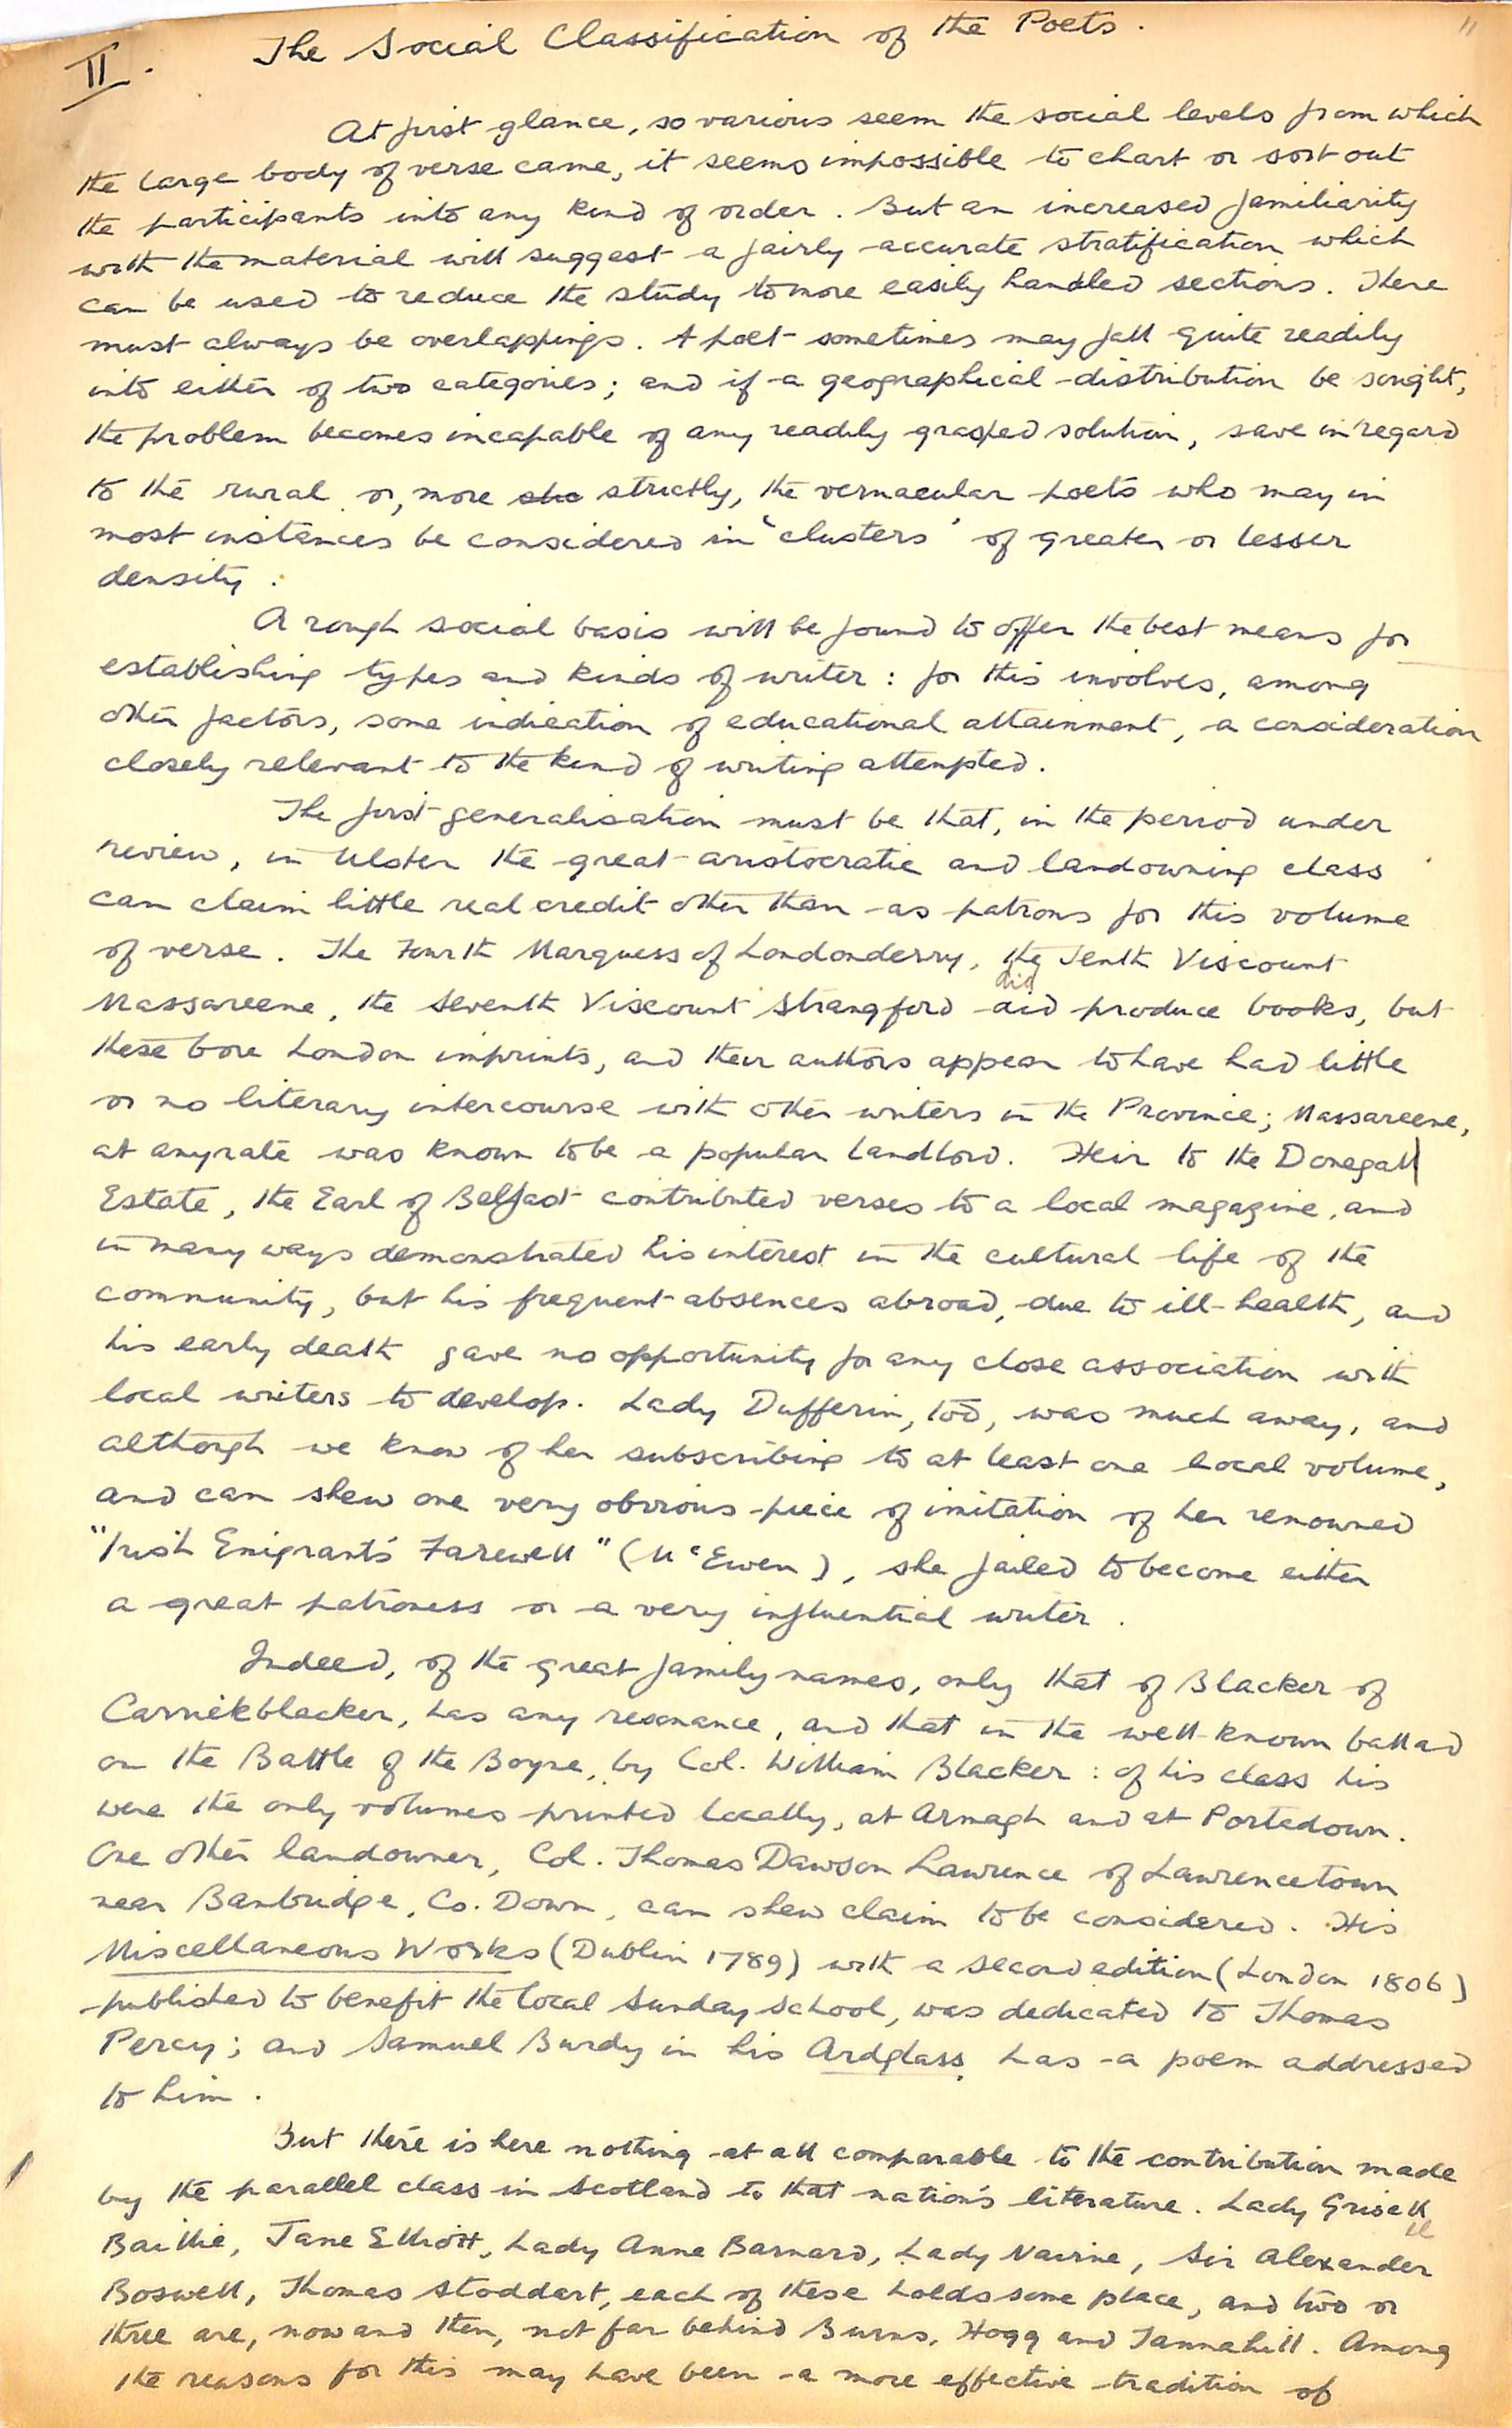 11
II. The Social Classification of the Poets.
At first glance, so various seem the social levels from which
the large body of verse came, it seems impossible to chart or sort out
the participants into any kind of order. But an increased familiarity
with the material will suggest a fairly accurate stratification which
can be used to reduce the study to more easily handled sections. There
must always be overlappings. A poet sometimes may fall quite readily
into either of two categories; and if a geographical distribution be sought,
the problem becomes incapable of any readily grasped solution, save in regard
to the rural or, more sho strictly, the vernacular poets who may in
most instances be considered in 'clusters' of greater or lesser
density.
A rough social basis will be found to offer the best means for
establishing types and kinds of writer: for this involves, among
other factors, some indication of educational attainment, a consideration
closely relevant to the kind of writing attempted.
The first generalisation must be that, in the period under
review, in Ulster the great aristocratic and landowning class
can claim little real credit other than as patrons for this volume
of verse. The Fourth Marquess of Londonderry, the Tenth Viscount
did
Massareene, the Seventh Viscount Strangford did produce books, but
these bore London imprints, and their authors appear to have had little
or no literary intercourse with other writers in the Province; Massareene,
at anyrate was known to be a popular landlord. Heir to the Donegall
Estate, the Earl of Belfast contributed verses to a local magazine, and
in many ways demonstrated his interest in the cultural life of the
community, but his frequent absences abroad, due to ill-health, and
his early death gave no opportunity for any close association with
local writers to develop. Lady Dufferin, too, was much away, and
although we know of her subscribing to at least one local volume,
and can shew one very obvious piece of imitation of her renowned
"Irish Emigrant's Farewell" (McEwen), she failed to become either
a great patroness or a very influential writer.
Indeed, of the great family names, only that of Blacker of
Carrickblacker, has any resonance, and that in the well-known ballad
on the Battle of the Boyne, by Col. William Blacker: of his class his
were the only volumes printed locally, at Armagh and at Portadown.
One other landowner, Col. Thomas Dawson Lawrence of Lawrencetown
near Banbridge, Co. Down, can shew claim to be considered. His
Miscellaneous Works (Dublin 1789) with a second edition (London 1806)
published to benefit the local Sunday School, was dedicated to Thomas
Percy; and Samuel Burdy in his Ardglass, has a poem addressed
to him.
But there is here nothing at all comparable to the contribution made
by the parallel class in Scotland to that nation's literature. Lady Grisell
ll
Baillie, Jane Elliott, Lady Anne Barnard, Lady Nairne, Sir Alexander
Boswell, Thomas Stoddart, each of these holds some place, and two or
three are, now and then, not far behind Burns, Hogg and Tannahill. Among
the reasons for this may have been a more effective tradition of